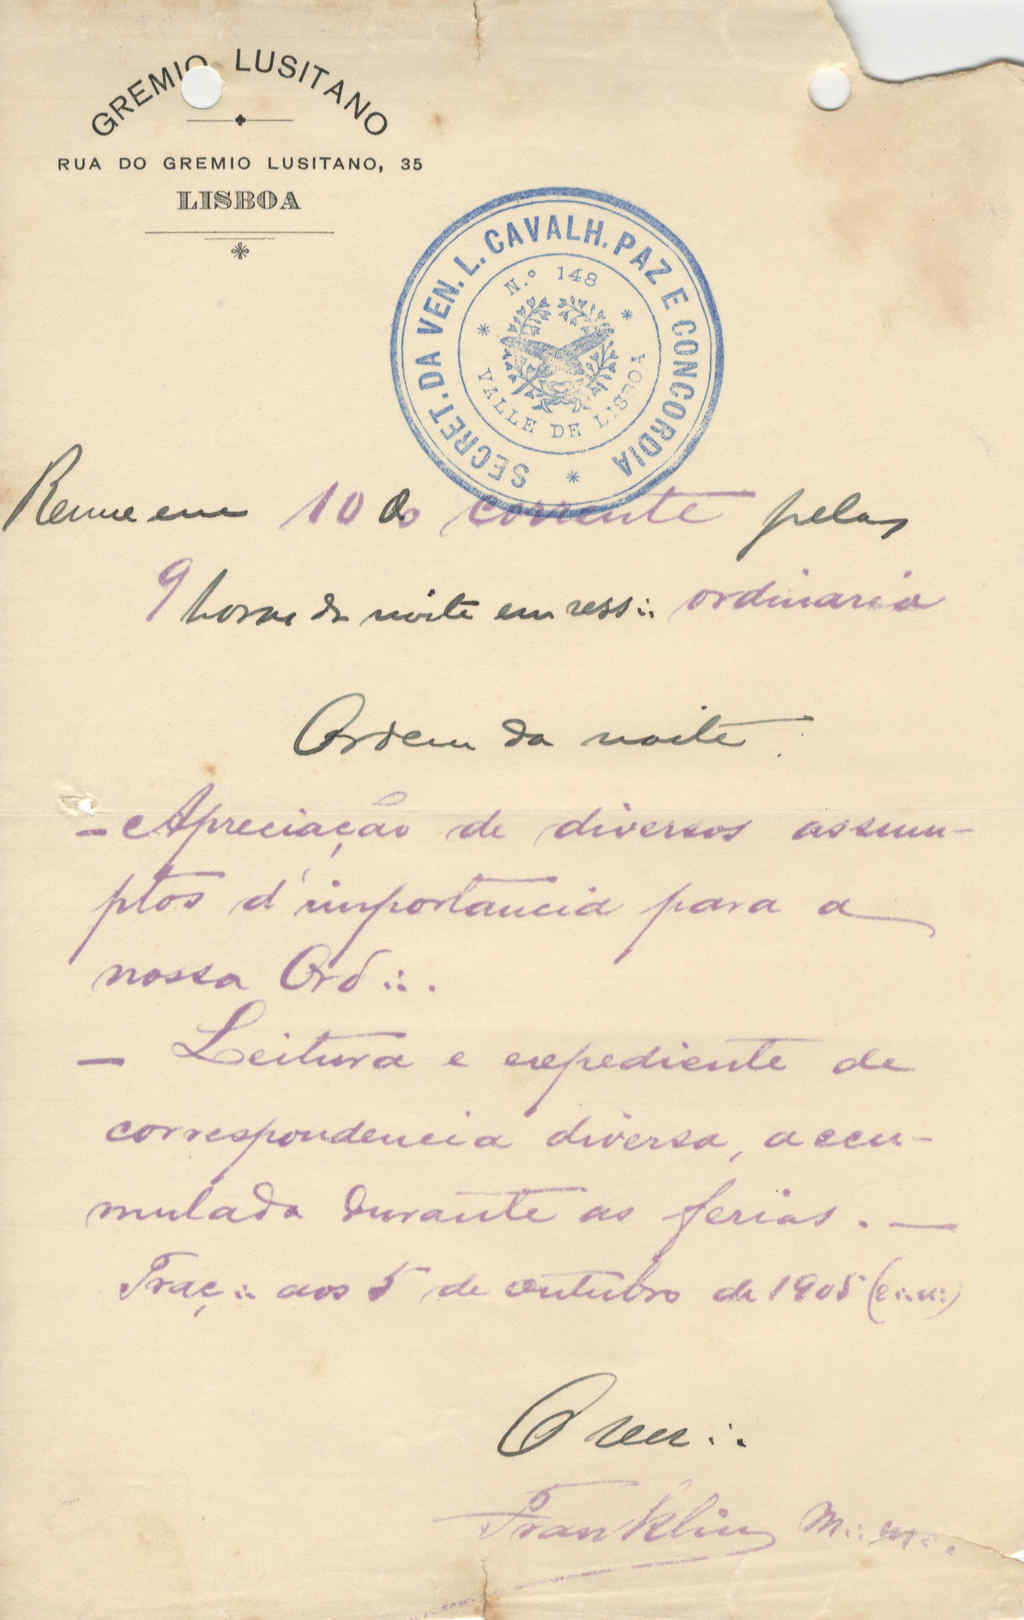 GREMIO LUSITANO
RUA DO GREMIO LUSITANO, 35
LISBOA
SECRET. DA VEN. L. CAVALH. PAZ E CONCORDIA
N.º 148
VALLE DE LISBOA
Reune em 10 do corrente pelas
9 horas da noite em sess∴ ordinaria
Ordem da noite
- Apreciação de diversos assum-
ptos d'importancia para a
nossa Ord∴.
- Leitura e expediente de
correspondencia diversa, accu-
mulada durante as ferias. -
Traç∴ aos 5 de outubro de 1905 (e∴v∴)
O Ven∴
Franklin M∴ M∴